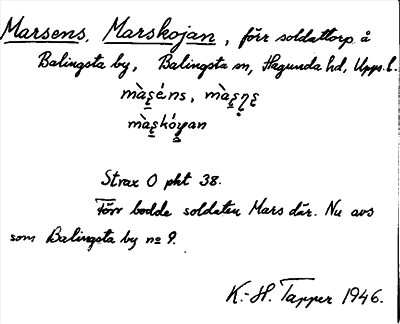 Marsens, Marskojan, förr soldattorp å
Balingsta by, Balingsta sn, Hagunda hd, Upps. l.
Strax O pkt 38.
Förr bodde soldaten Mars där. Nu avs
som Balingsta by no 9.
K.-H. Tapper 1946.